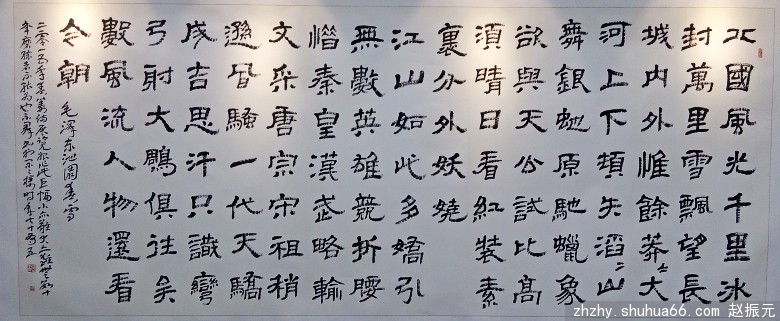 北國風光千里冰
封萬里雪飄望長
城内外惟餘莽〻大
河上下頓失滔〻山
舞銀虵原馳蠟象
欲與天公試比髙
須晴日看紅裝素
裹分外妖嬈
江山如此多嬌引
無數英雄競折腰
惜秦皇漢武略輸
文采唐宗宋祖稍
遜風騷一代天驕
成吉思汗只識彎
弓射大鵰俱往矣
數風流人物還看
今朝
毛澤东沁園春雪
二零一五年
zhzhy.shuhua66.com 赵振元